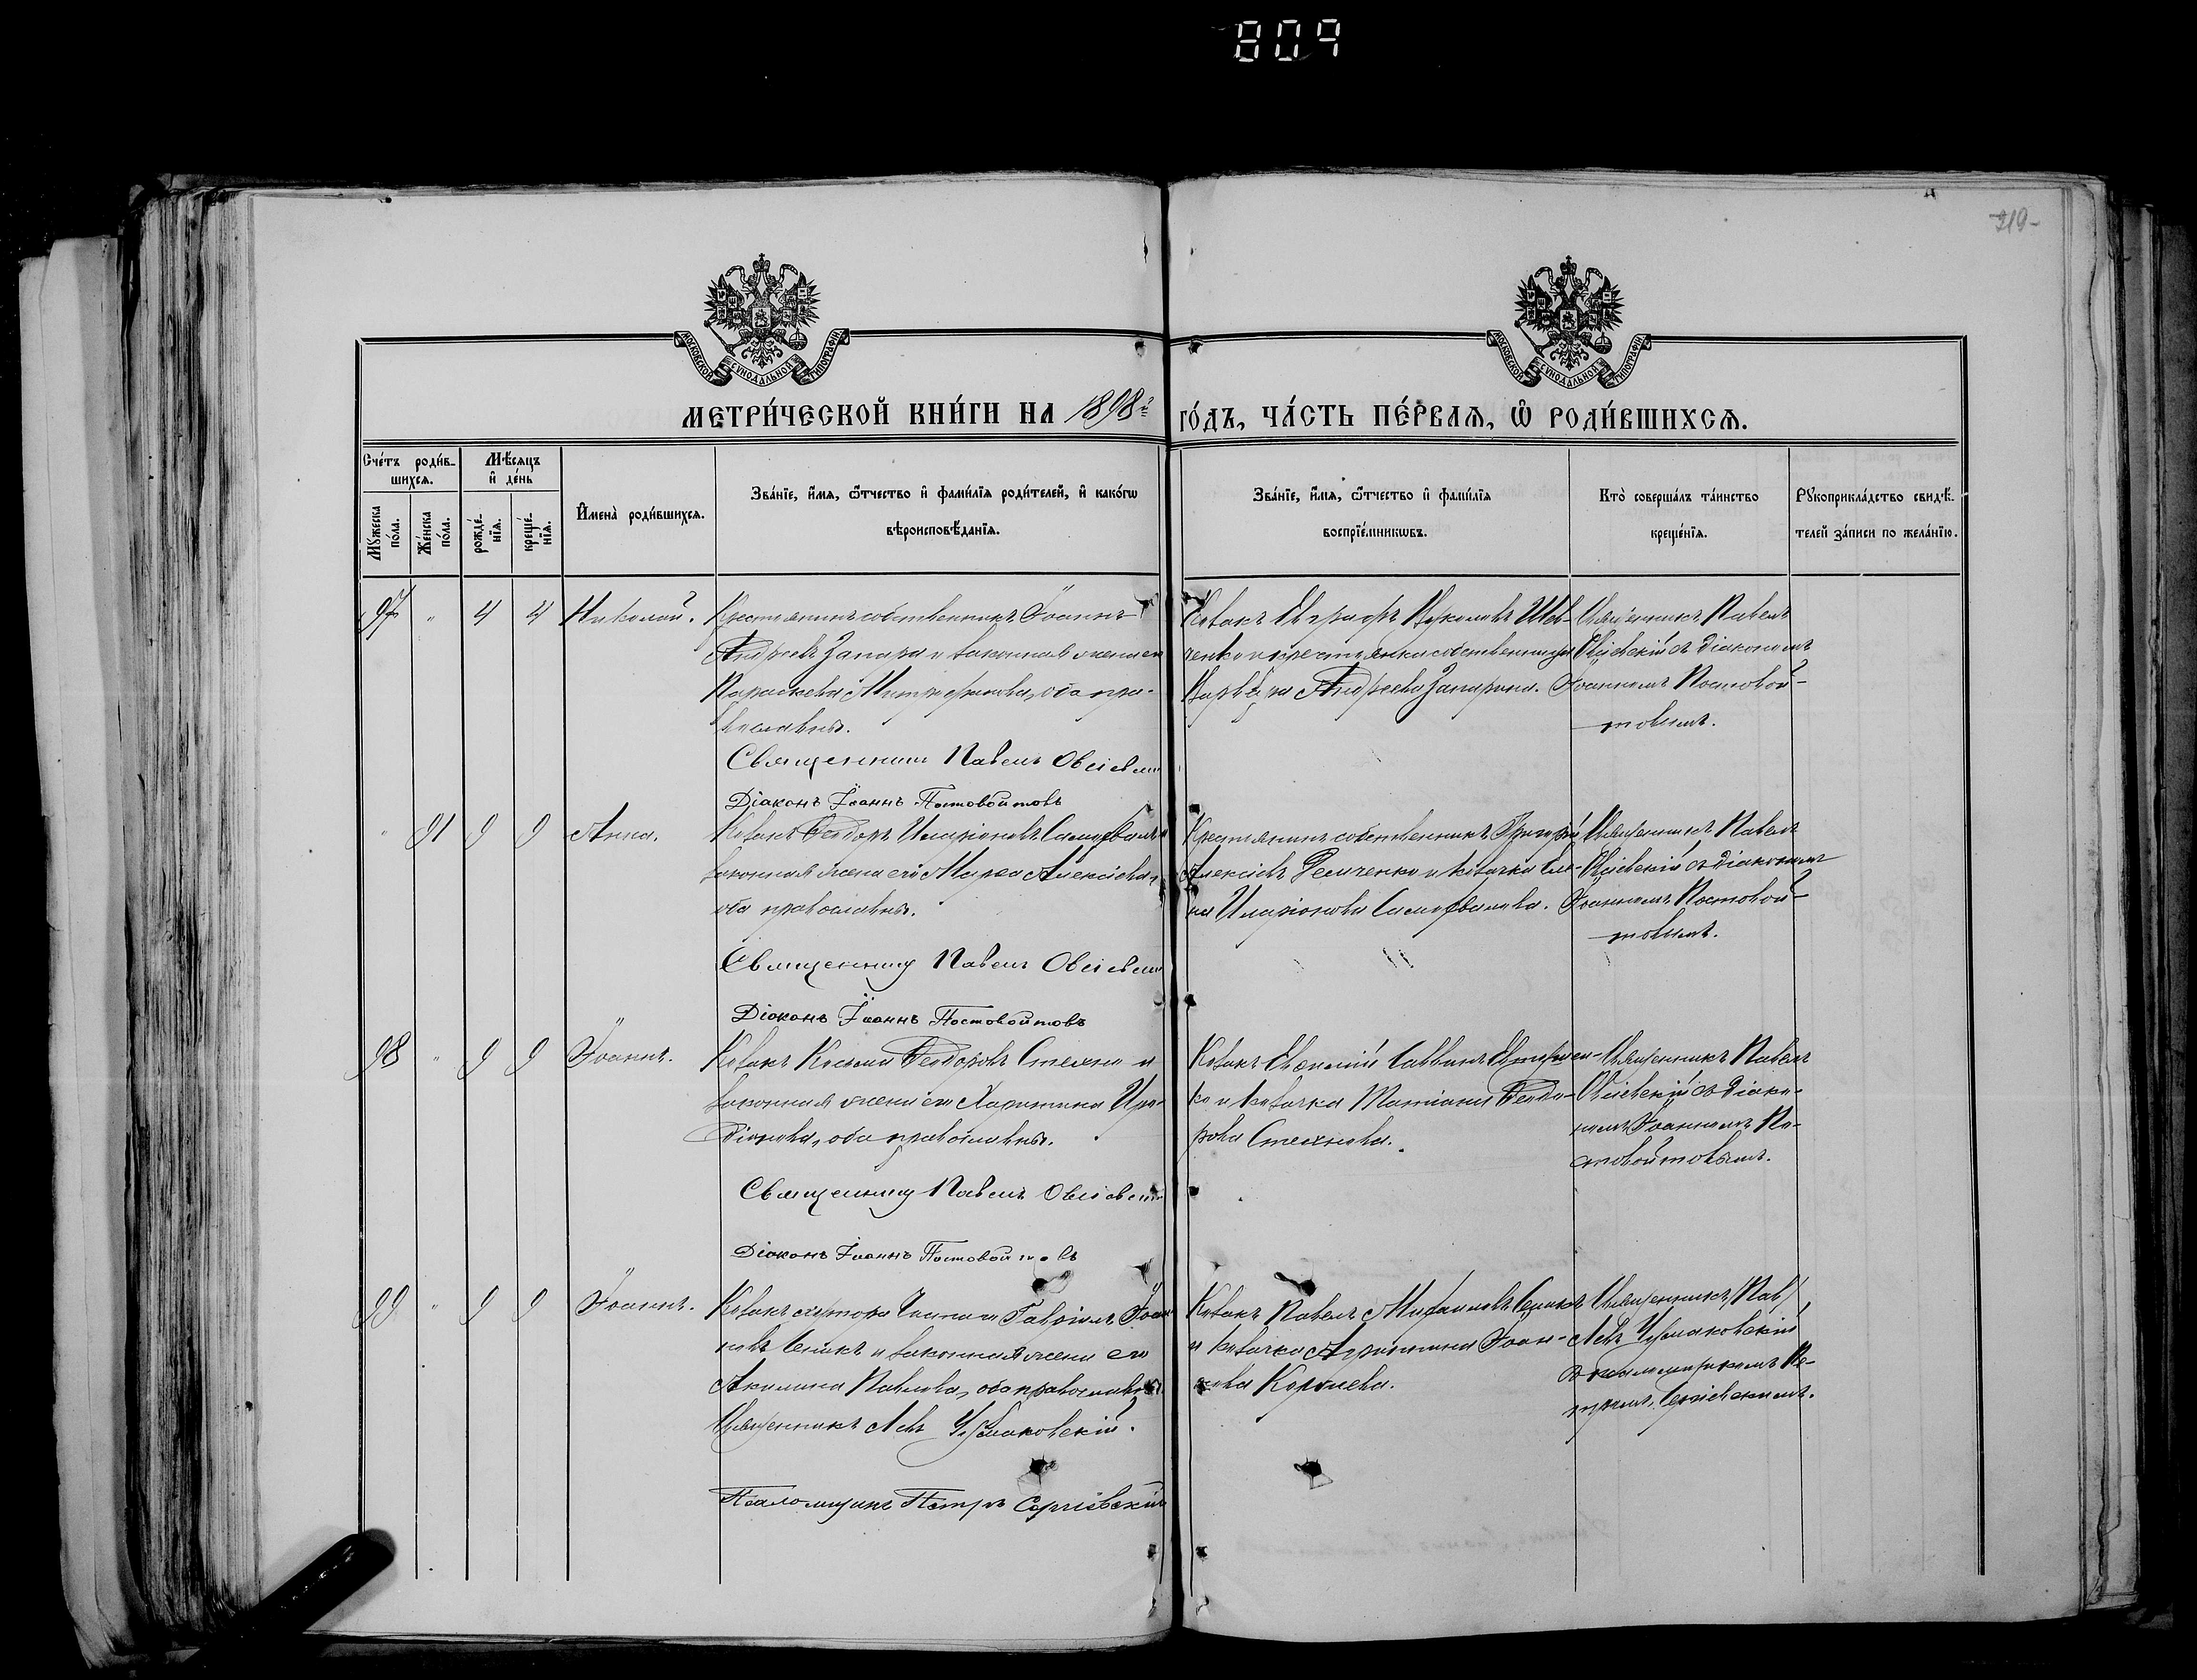 809
219-
МОСКОВСКОЙ СѴНОДАЛЬНОЙ ТИПОГРАФІИ
МОСКОВСКОЙ СѴНОДАЛЬНОЙ ТИПОГРАФІИ
МЕТРИ́ЧЕСКОЙ КНИ́ГИ НА 1898й ГО́ДЪ, ЧА́СТЬ ПЕ́РВАѦ, Ѡ РОДИ́ВШИХСѦ.
Сче́тъ роди́в-
шихсѧ.
Мꙋжеска по́ла.
Же́нска по́ла.
Мѣ́сѧцъ и҆ де́нь
рожде́-нїѧ.
креще́-нїѧ.
И҆мена̀ роди́вшихсѧ.
Зва́нїе, и҆́мѧ, ѻ҆́тчество и҆ фами́лїѧ роди́телей, и҆ како́гѡ
вѣроисповѣ́данїѧ.
Зва́нїе, и҆́мѧ, ѻ҆́тчество и҆ фами́лїѧ
воспрїе́мникѡвъ.
Кто̀ соверша́лъ та́инство
креще́нїѧ.
Рꙋкоприкла́дство свидѣ́-
телей за́писи по жела́нїю.
97 " 4 4 Николай.
Крестьянинъ собственникъ Іоаннъ
Андреевъ Запара и законная жена его
Параскева Митрофанова, оба пра-
вославны.
Священникъ Павелъ Овсіевскій
Діаконъ Іоаннъ Постовойтовъ
Козакъ Шев-
ченко и крестьянка собственница
Варвара Андреева Запарина.
Священникъ Павелъ
Овсіевскій съ діакономъ
Іоанномъ Постовой-
товымъ.
" 91 9 9 Анна.
Козакъ Ѳеодоръ Иларіоновъ Самофалъ и
законная жена его Марѳа Алексіева,
оба православны.
Священникъ Павелъ Овсіевскій
Діаконъ Іоаннъ Постовойтовъ
Крестьянинъ собственникъ Григорій
Алексіевъ Демченко и козачка Еле-
на Иларіонова Самофалова.
Священникъ Павелъ
Овсіевскій съ діакономъ
Іоанномъ Постовой-
товымъ.
98 " 9 9 Іоаннъ.
Козакъ Косьма Ѳеодоровъ Стехна и
законная жена его Харитина Иро-
діонова, оба православны.
Священникъ Павелъ Овсіевскій
Діаконъ Іоаннъ Постовойтовъ
Козакъ Евѳимій Саввинъ
ко и козачка Татіана Ѳеодо-
рова Стехнова.
Священникъ Павелъ
Овсіевскій съ діако-
номъ Іоанномъ По-
стовойтовымъ.
99 " 9 9 Іоаннъ.
Козакъ хутора Гавріилъ Іоан
новъ Сеникъ и законная жена его
Акилина Павлова, оба православны.
Священникъ Левъ Чудновскій.
Псаломщикъ Петръ Сергіевскій
Козакъ Павелъ Михаиловъ Сеникъ
и козачка Агриппина Іоан-
нова Королева.
Священникъ /Пав/
Левъ
съ псаломщикомъ Пе-
тромъ Сергіевскимъ.